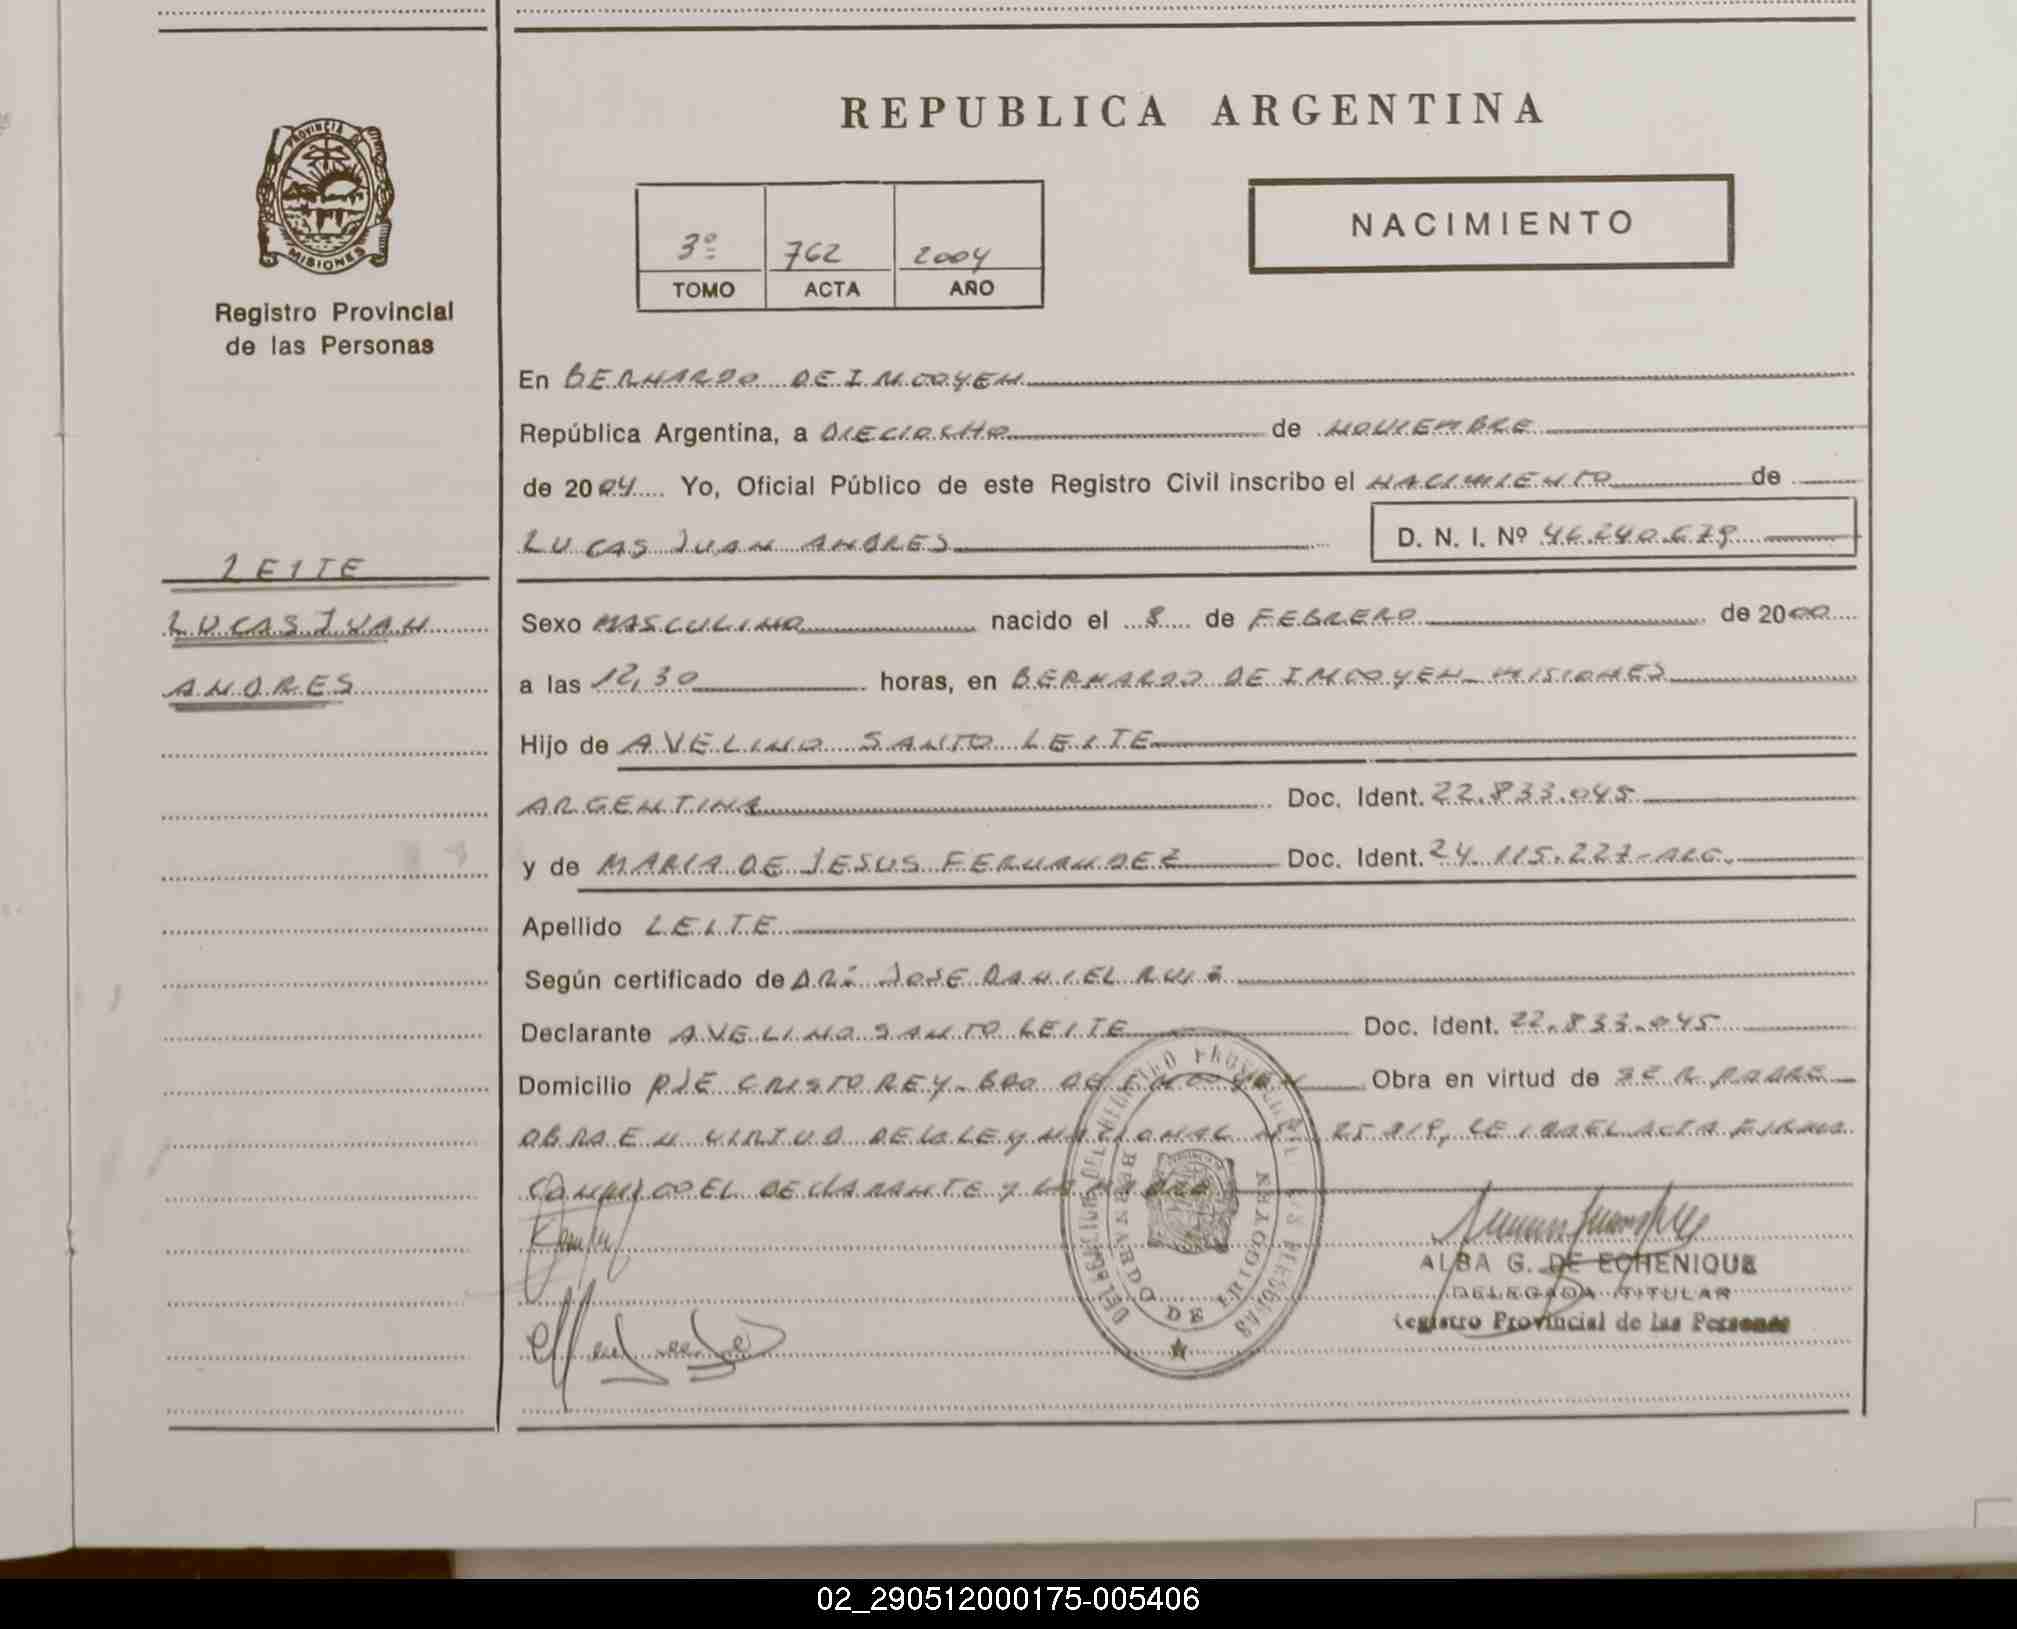 REPUBLICA ARGENTINA
PROVINCIA DE
MISIONES
Registro Provincial
de las Personas
3º 762 2004
TOMO ACTA AÑO
NACIMIENTO
En BERNARDO DE IRIGOYEN
República Argentina, a DIECIOCHO de NOVIEMBRE
de 2004 Yo, Oficial Público de este Registro Civil inscribo el NACIMIENTO de
LUCAS JUAN ANDRES D. N. I. Nº 46.240.679
LEITE
LUCAS JUAN
ANDRES
Sexo MASCULINO nacido el 8 de FEBRERO de 2000
a las 12,30 horas, en BERNARDO DE IRIGOYEN - MISIONES
Hijo de AVELINO SANTO LEITE
ARGENTINA Doc. Ident. 22.833.045
y de MARIA DE JESUS FERNANDEZ Doc. Ident. 24.115.227-ARG.
Apellido LEITE
Según certificado de DR: JOSE DANIEL RUIZ
Declarante AVELINO SANTO LEITE Doc. Ident. 22.833.045
Domicilio PJE CRISTO REY - BDO DE IRIGOYEN Obra en virtud de SER PADRE
OBRA EN VIRTUD DE LA LEY NACIONAL Nº 25.819, LEIDA EL ACTA FIRMA
CONMIGO EL DECLARANTE Y LA MADRE
DELEGACION DEL REGISTRO PROVINCIAL DE LAS PERSONAS
BERNARDO DE IRIGOYEN
ALBA G. DE ECHENIQUE
DELEGADA TITULAR
Registro Provincial de las Personas
02_290512000175-005406